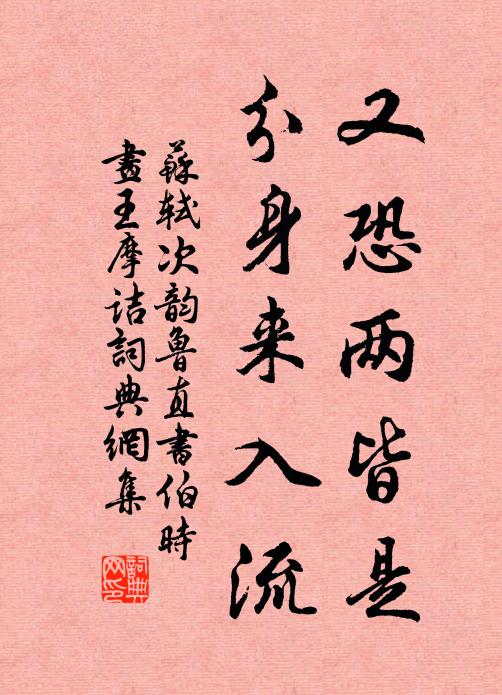 又恐两皆是
分身来入流
蘇轼次韵鲁直書伯時
畫王摩詰詞典網集
詞典网印